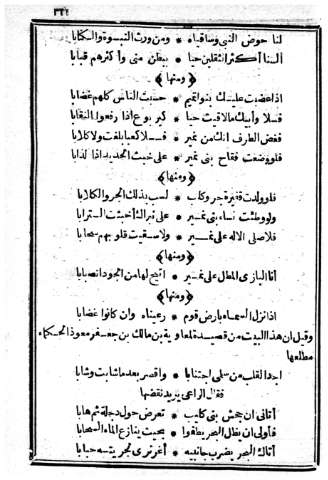 ٣٣٤
لنا حوض النبي وساقياه * ومن ورث النبوة والكتابا
ألسنا أكثر الثقلين حيا * ببطن منى وأكثرهم قبابا
(ومنها)
اذا غضبت عليك بنو تميم * حسبت الناس كلهم غضابا
فلا وأبيك مالاقيت حيا * كيربوع اذا رفعوا النقابا
فغض الطرف انك من نمير * فلا كعبا بلغت ولا كلابا
فلو وضعت فقاح بني نمير * على خبث الحديد اذا لذابا
(ومنها)
فلو ولدت قفيرة جرو كلب * لسب بذلك الجرو الكلابا
ولو وطئت نساء بني نمير * على تبراك أخبثت الترابا
فلا صلى الاله على نمير * ولا سقيت قلوبهم سحابا
(ومنها)
أنا البازي المطل على نمير * اتيح لها من الجو انصبابا
(ومنها)
اذا نزل السماء بارض قوم * رعيناه وان كانوا غضابا
وقيل ان هذا البيت من قصيدة لمعاوية بن مالك بن جعفر معوذ الحكماء
مطلعها
اجد القلب من سلمى اجتنابا * واقصر بعد ما شابت وشابا
فقال الراعي يريد نقضها
أتاني ان جحش بني كليب * تعرض حول دجلة ثم هابا
فأولى ان يظل البحر يطفوا * بحيث ينازع الماء السحابا
أتاك البحر يضرب جانبيه * أغر ترى لجريته حبابا